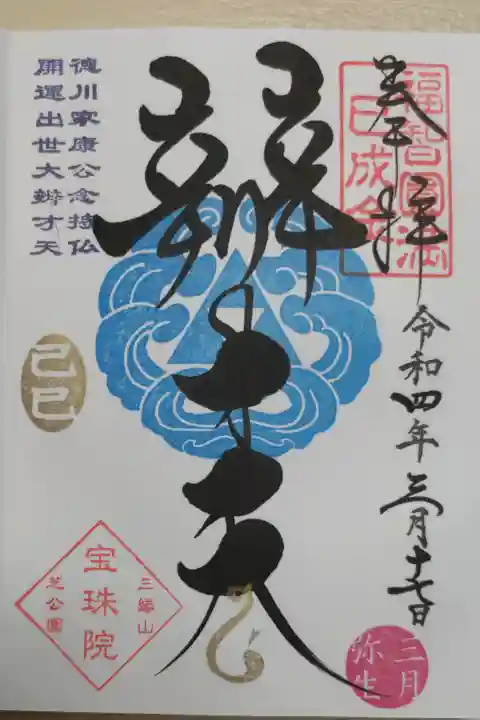 奉拝
福智円満
巳成金
令和四年三月十七日
三月
弥生
辨才天
徳川家康公念持仏
開運出世大辨才天
己巳
三縁山
宝珠院
芝公園